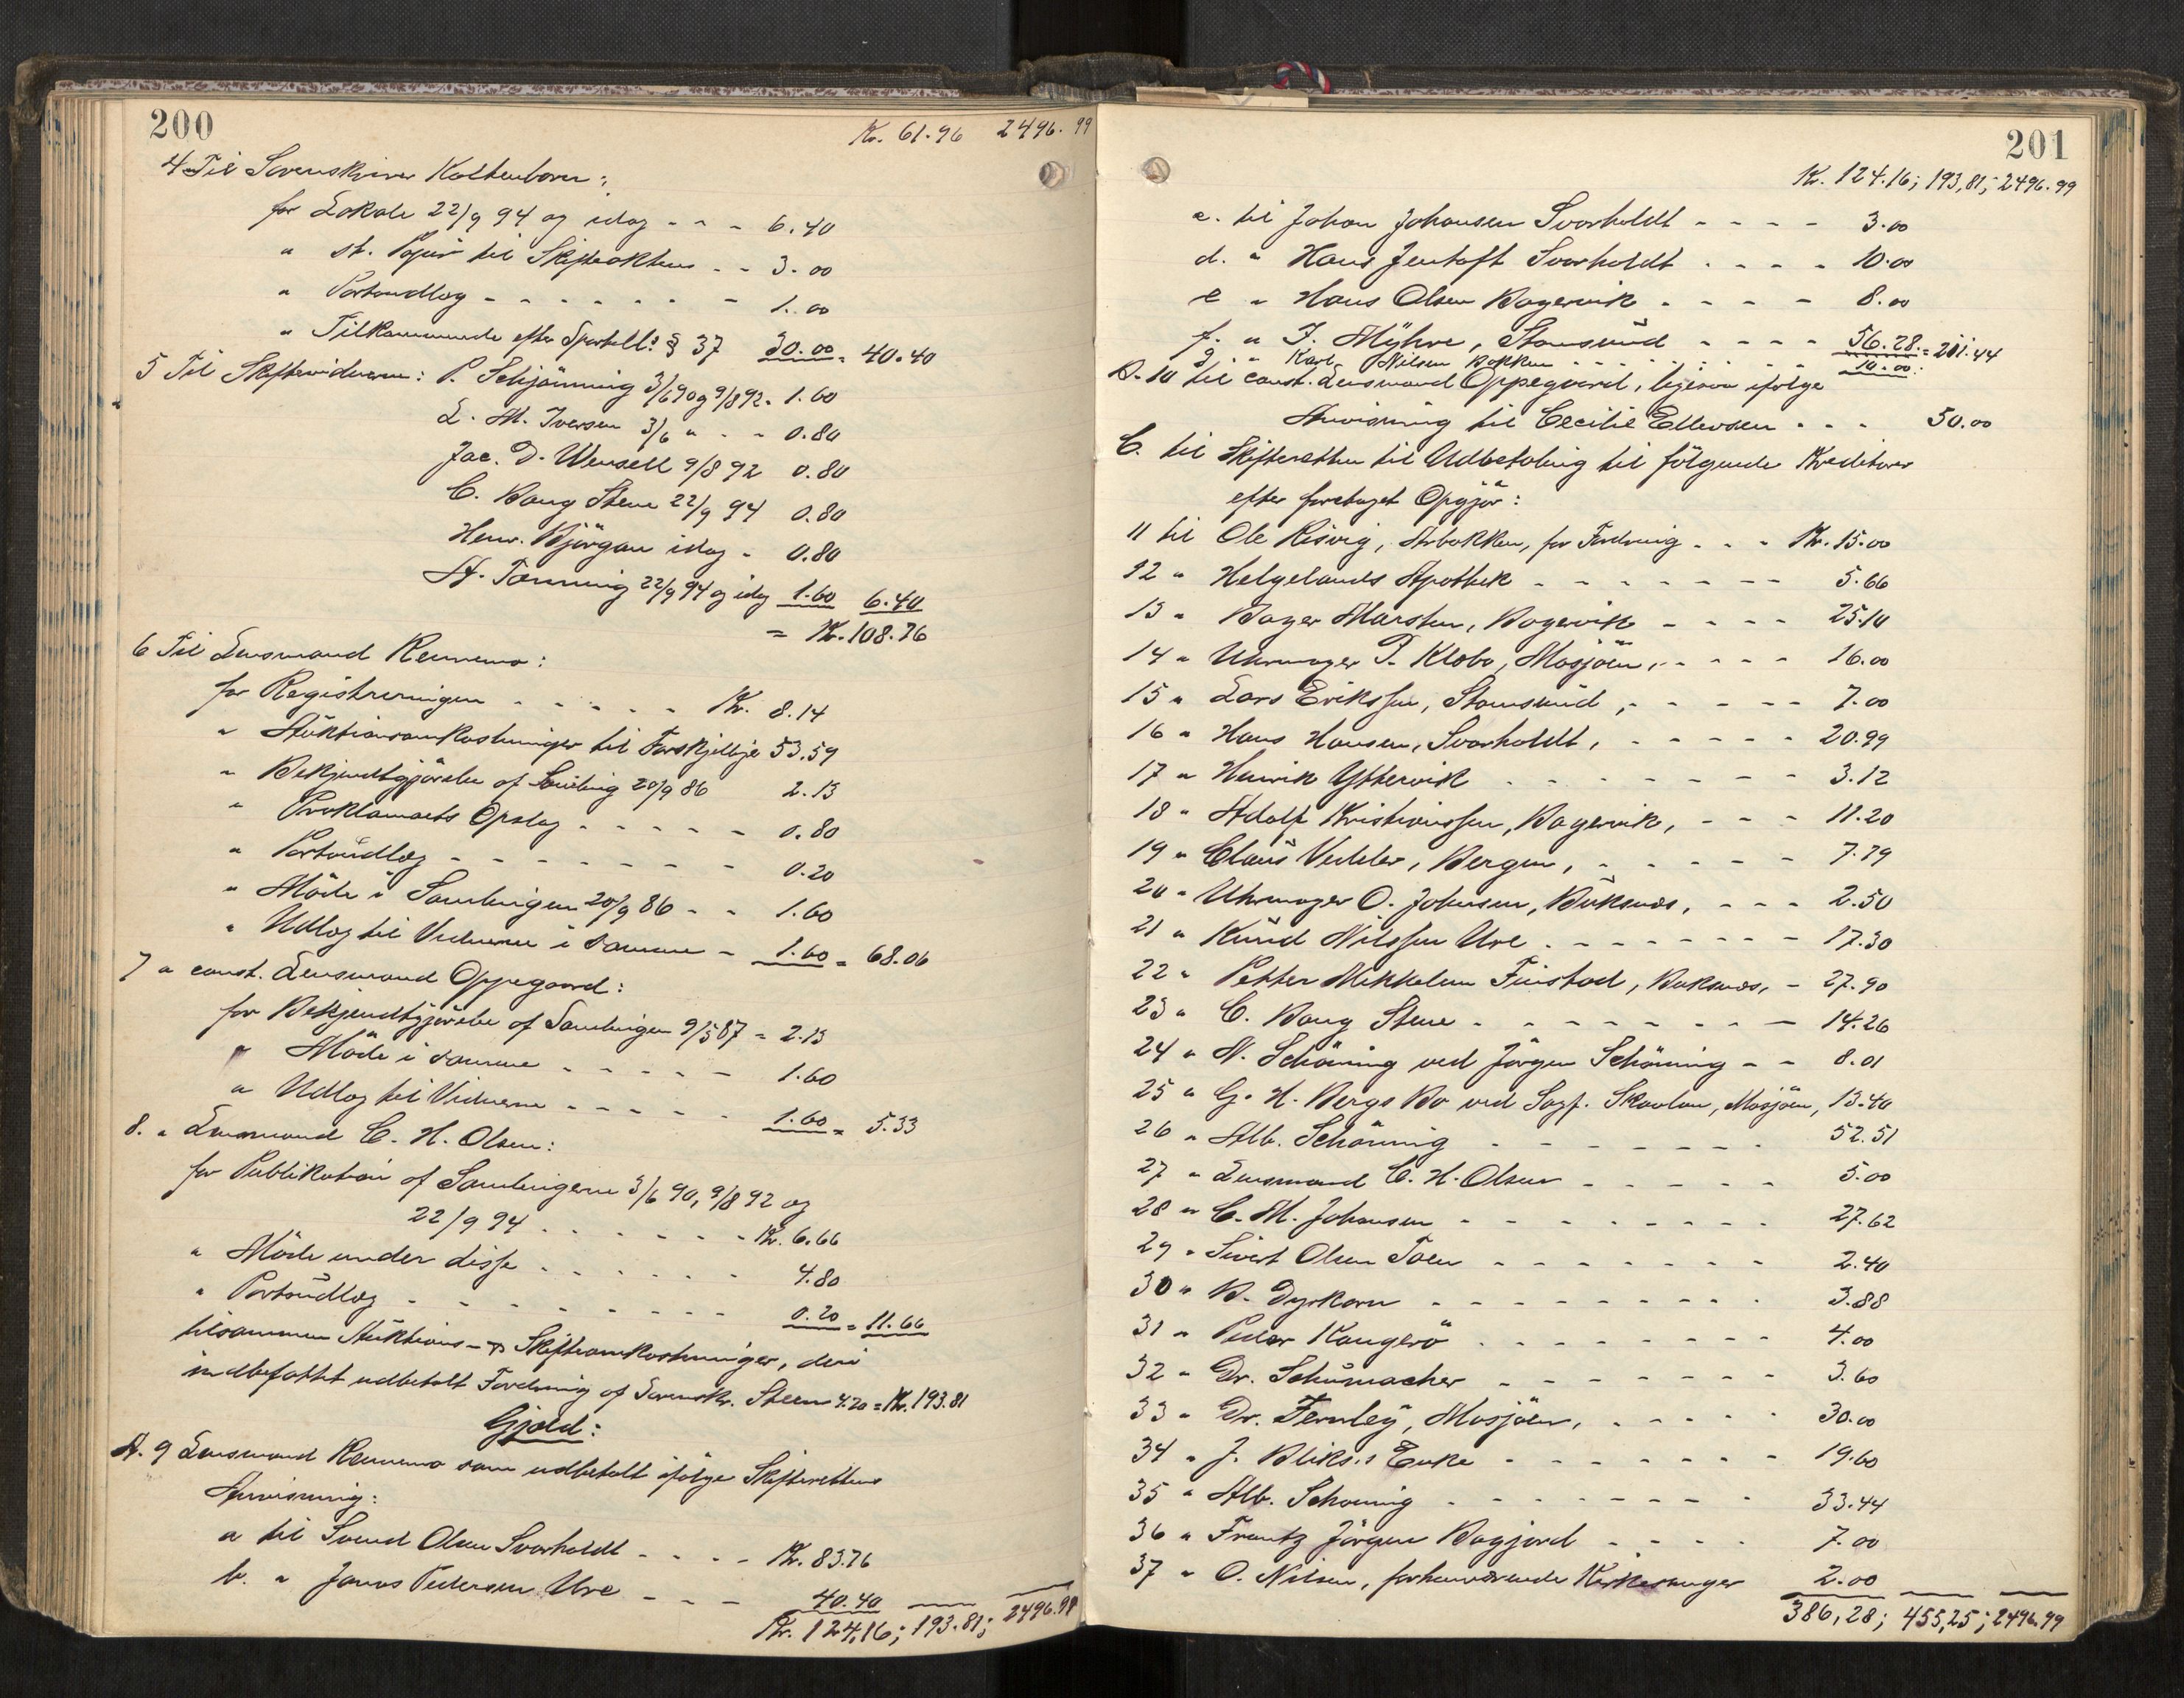 200
Kr. 61.96 2496.99
4 Til Sorenskriver Koltenborn:
for Lokale 22/9 94 og idag - - - 6.40
" st. Papir til Skifteakten - - 3.00
" Portoudlæg - - - - - - - 1.00
" Tilkommende efter Sportell: § 37 30.00 = 40.40
5 Til Skiftevidnerne: P. Schjönning 3/6 90 og 9/8 92 - 1.60
L. M. Iversen 3/6 " - - 0.80
Jac. D. Wensell 9/8 92 0.80
C. Bang Steen 22/9 94 0.80
Henr. Björgan idag - 0.80
A. Tønning 22/9 94 og idag 1.60 6.40
= Kr. 108.76
6 Til Lensmand Rennemo:
for Registreringen - - - - - Kr. 8.14
" Auktionsomkostninger til Forskjellige 53.59
" Bekjendtgjörelse af Samling 20/9 86 2.13
" Proklamaets Opslag - - - - - 0.80
" Portoudlæg - - - - - - - 0.20
" Möde i Samlingen 20/9 86 - - 1.60
" Udlæg til Vidnerne i samme - 1.60 = 68.06
7 " const. Lensmand Oppegaard:
for Bekjendtgjörelse af Samlingen 9/5 87 = 2.13
" Möde i samme - - - - - 1.60
" Udlæg til Vidnerne - - - - - 1.60 = 5.33
8. " Lensmand C. H. Olsen:
for Publikation af Samlingerne 3/6 90, 9/8 92 og
22/9 94 - - - - - - - Kr. 6.66
" Möde under disse - - - - - - 4.80
" Portoudlæg - - - - - - - - 0.20 = 11.66
tilsammen Auktions- og Skifteomkostninger, deri
indbefattet udbetalt Fordring af Sorenskr. Steen 4.20 = Kr. 193.81
Gjæld:
A. 9 Lensmand Rennemo som udbetalt ifölge Skifterettens
Anvisning:
a til Svend Olsen Svarholdt - - - - Kr. 83.76
b. " Jonas Pedersen Ure - - - 40.40
Kr. 124,16; 193.81; 2496.99
201
Kr. 124.16; 193,81; 2496.99
c. til Johan Johansen Svarholdt - - - - 3.00
d. " Hans Jentoft Svarholdt - - - - 10.00
e " Hans Olsen Bagervik - - - - 8.00
f. " J. Myhre, Stamsund - - - - 56.28 = 211.44
g. " Karl Nilsen Bakken - - - - - - - 10.00
B. 10 til const. Lensmand Oppegaard, ligesaa ifölge
Anvisning til Cecilie Ellevsen - - - 50.00
C. til Skifteretten til Udbetaling til fölgende Kreditorer
efter foretaget Opgjör:
11 til Ole Risvig, Arbakken, for Fordring - - - Kr. 15.00
12 " Helgelands Apothek - - - - - - - 5.66
13 " Bager Marsten, Bagervik - - - - 25.10
14 " Uhrmager P. Klæbo, Mosjöen, - - - - 16.00
15 " Lars Erikssen, Stamsund, - - - - - 7.00
16 " Hans Hansen, Svarholdt, - - - - - 20.99
17 " Henrik Yttervik - - - - - - - 3.12
18 " Adolf Kristianssen, Bagervik, - - - 11.20
19 " Claus Vedeler, Bergen, - - - - - 7.79
20 " Uhrmager O. Johnsen, Buksnæs, - - - 2.50
21 " Knud Nilssen Ure - - - - - - - 17.30
22 " Petter Mikkelsen Finstad, Buksnæs, - 27.90
23 " C. Bang Steen - - - - - - - 14.26
24 " N. Schöning ved Jörgen Schöning - - 8.01
25 " G. H. Bergs Bo ved Sagf. Skavlan, Mosjöen, 13.40
26 " Alb. Schönnig - - - - - - - 52.51
27 " Lensmand C. H. Olsen - - - - - 5.00
28 " C. M. Johansen - - - - - - - - 27.62
29 " Sivert Olsen Toen - - - - - - - 2.40
30 " B. Dyrkorn - - - - - - - - - 3.88
31 " Peder Kangerö - - - - - - - - 4.00
32 " Dr. Schumacher - - - - - - - 3.60
33 " Dr. Fernley, Mosjöen, - - - - - 30.00
34 " J. Bliks's Enke - - - - - - - 19.60
35 " Alb. Schonnig - - - - - - - - 33.44
36 " Frantz Jörgen Bogfjord - - - - 7.00
37 " O. Nilsen, forhenværende Kirkesanger 2.00
386,28; 455,25; 2496.99